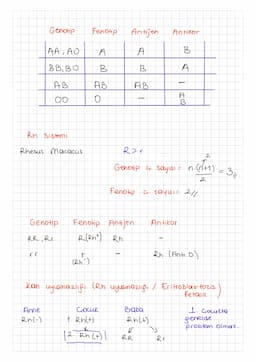 Genotip Fenotip Antijen Antikor
AA, AO A A B
BB, BO B B A
AB AB AB -
OO O - A B
Rh Sistemi
Rhesus Macacus R>r
Genotip ç. sayısı = n(n+1) = 3
2
Fenotip ç. sayısı = 2
Genotip Fenotip Antijen Antikor
RR, Rr R(Rh+) Rh -
rr r - Rh (Anti D)
(Rh-)
Kan uyuşmazlığı (Rh uyuşmazlığı / Eritroblastozis
Fetalis
Anne Çocuk Baba 1. Çocukta
Rh(-) 1 Rh(+) Rh(+) genelde
2 Rh(+) RR Rr problem olmaz.